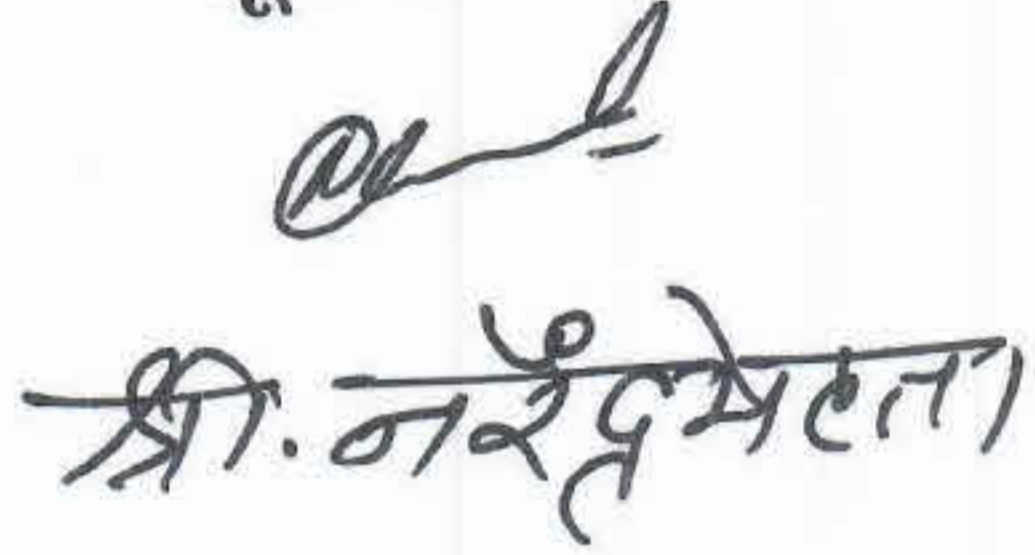 श्री. नरेंद्र मेहता